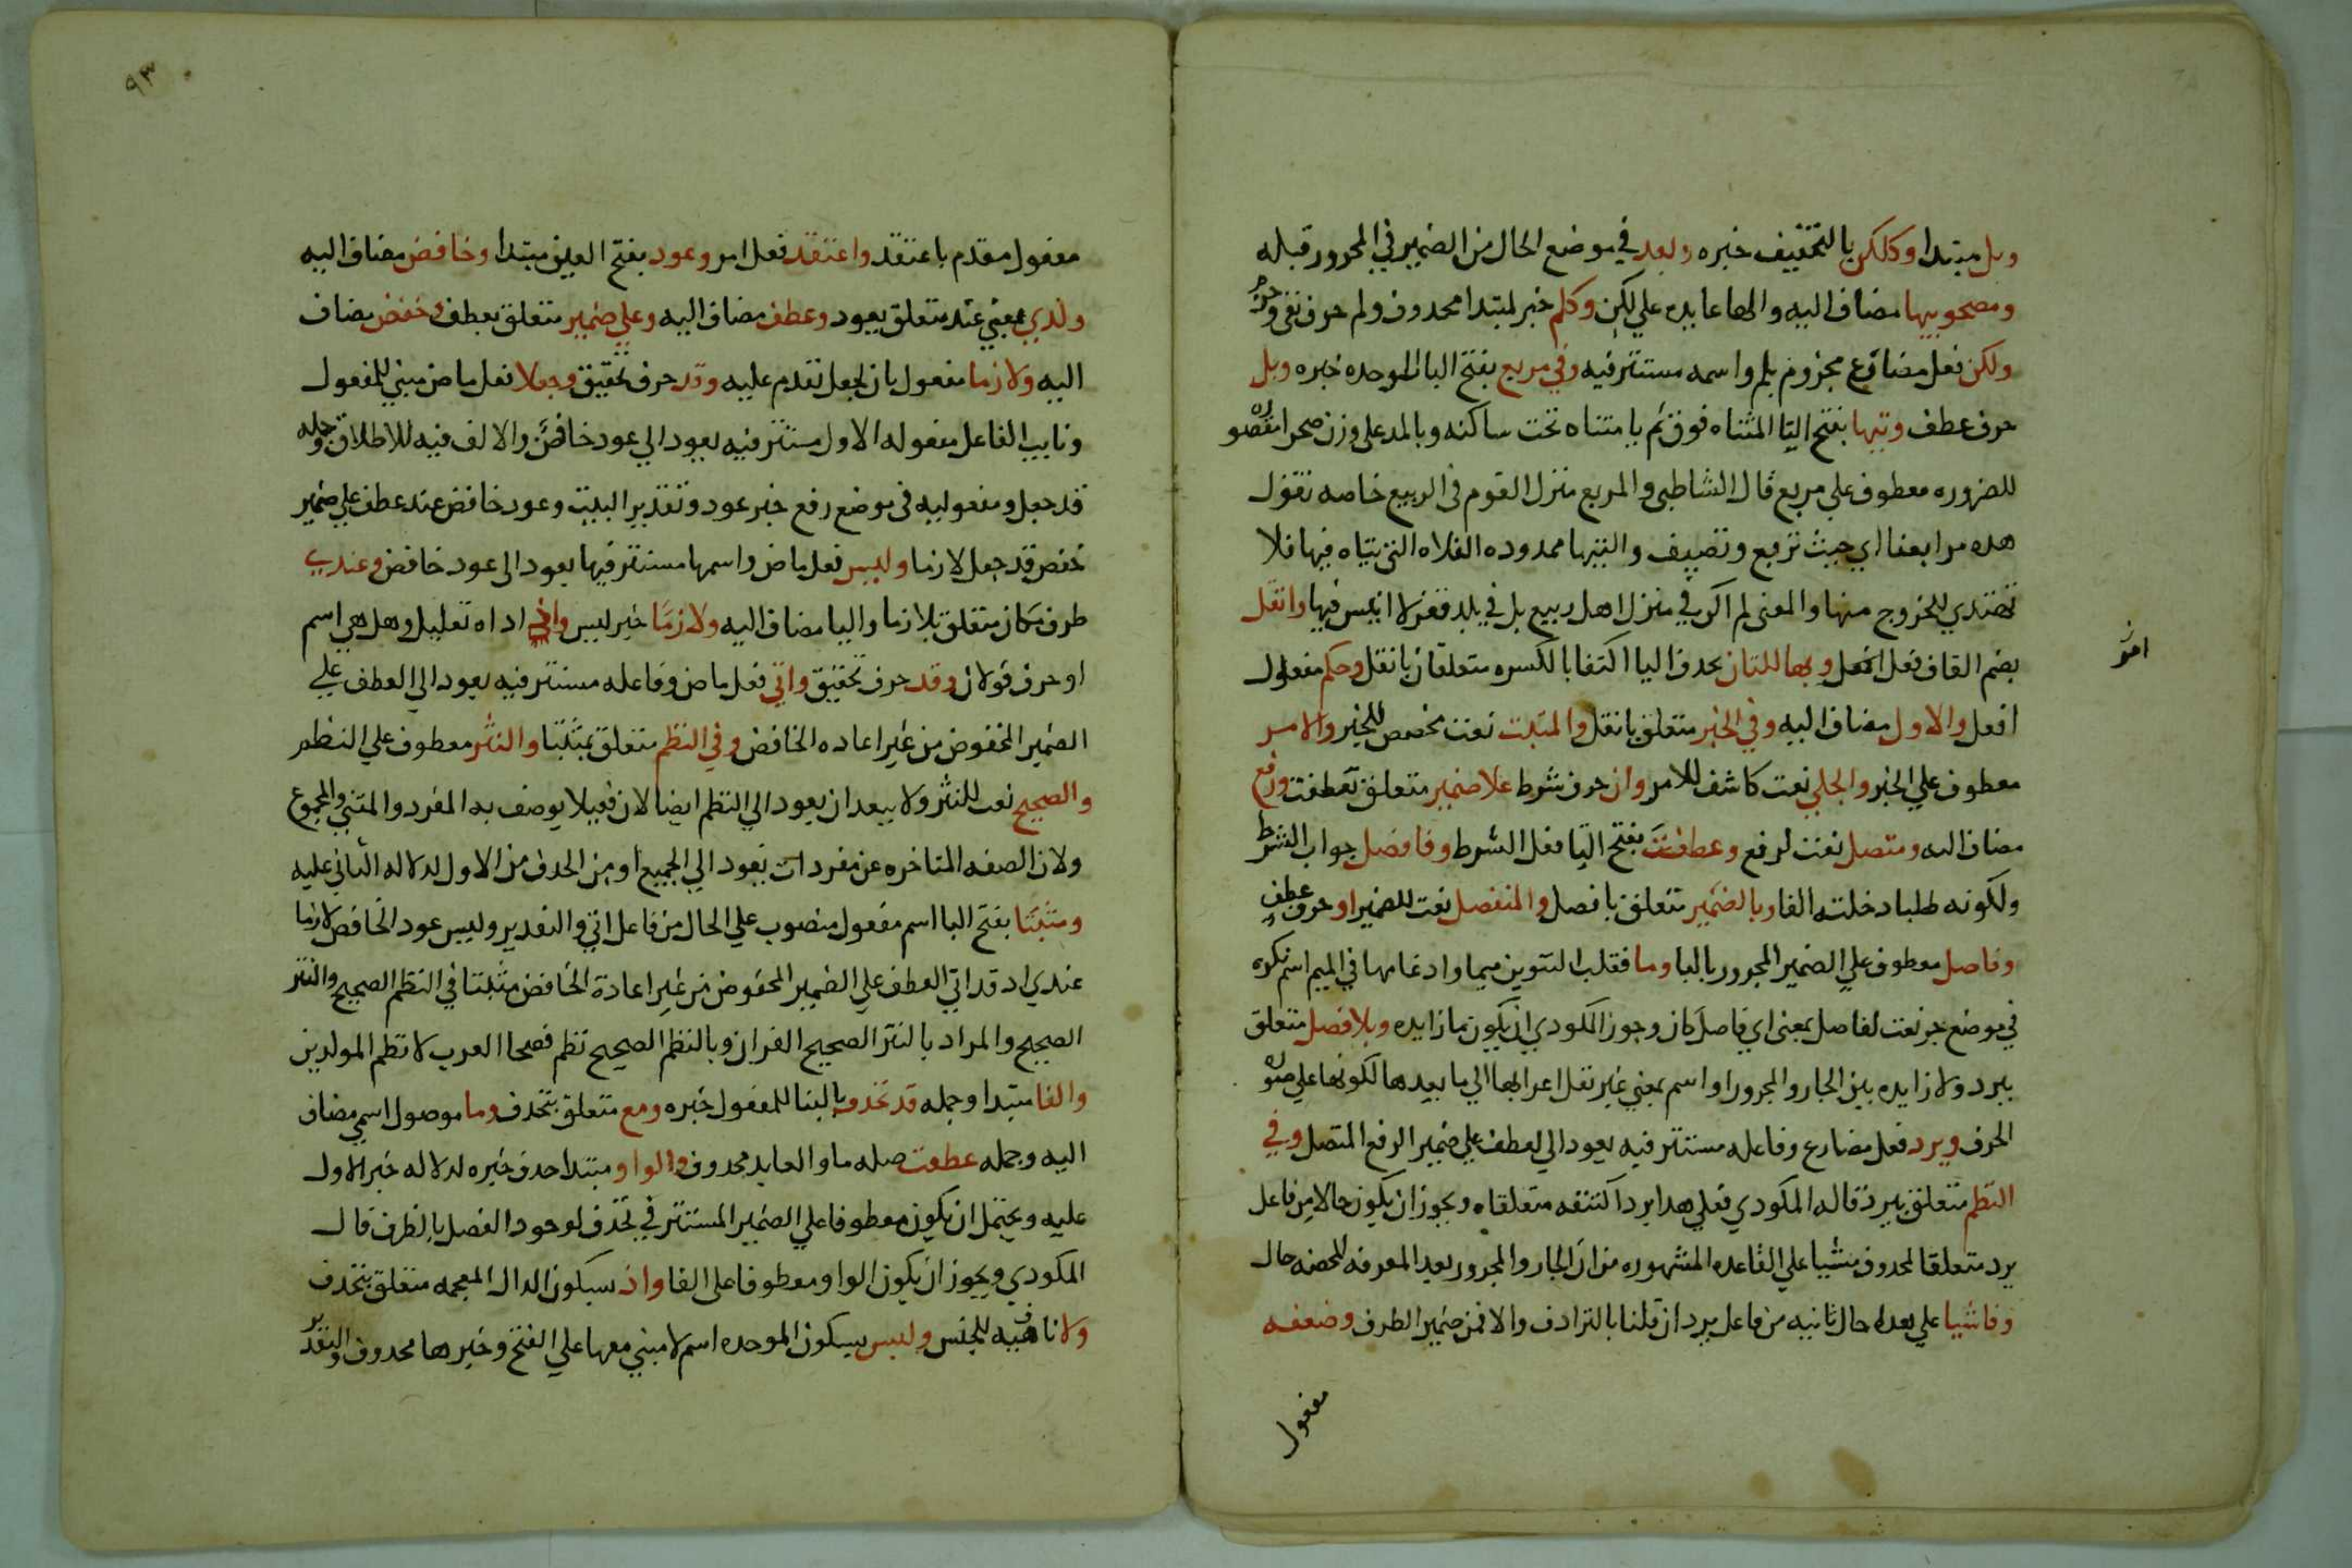 وبل مبتدا وكلكن بالتخفيف خبره وبعد في موضع الحال من الضمير في المجرور قبله
ومصحوبيها مضاف اليه والها عايده علي لكن وكلم خبر لمبتدا محدوف ولم حرف نفي وجزم
ولكن فعل مضارع مجزوم بلم واسمه مستتر فيه وفي مربع بفتح الباء الموحده خبره وبل
حرف عطف وتيها بفتح التا المثناه فوق ثم يا مثناه تحت ساكنه وبالمد علي وزن صحرا مقصوره
للضروره معطوف علي مربع قال الشاطبي والمربع منزل القوم في الربيع خاصه تقول
هده مرابعنا اي حيث نربع ونصيف والتيها ممدوده الفلاه التي يتاه فيها فلا
تهتدي للخروج منها والمعني لم اكن في منزل اهل ربيع بل في بلد قفر لا انيس فيها وانقل
بضم القاف فعل امر وبها للثان بحدف اليا اكتفا بالكسره متعلقان بانقل وحكم مفعول
افعل والاول مضاف اليه وفي الخبر متعلق بانقل والمثبت نعت مخصص للخبر والامر
معطوف علي الخبر والجلي نعت كاشف للامر وان حرف شرط علا ضمير متعلق بعطفت ورفع
مضاف اليه ومتصل نعت لرفع وعطفت بفتح التا فعل الشرط وفافصل جواب الشرط
ولكونه طلبا دخلته الفا وبالضمير متعلق بافصل والمنفصل نعت للضمير او حرف عطف
وفاصل معطوف علي الضمير المجرور بالبا وما فقلب التنوين ميما وادغامها في الميم اسم نكره
في موضع جر نعت لفاصل بمعني اي فاصل كان وجوز المكودي ان يكون ما زايده وبلا فصل متعلق
بيرد ولا زايده بين الجار والمجرور او اسم بمعني غير نقل اعرابها الي ما بعدها لكونها علي صوره
الحرف ويرد فعل مضارع وفاعله مستتر فيه يعود الي لعطف علي ضمير الرفع المتصل وفي
النظم متعلق بيرد قاله المكودي فعلي هدا يرد اكتنفه متعلقاه ويجوز ان يكون حالا من فاعل
يرد متعلقا لمحدوف مشيا علي القاعده المشهوره من ان الجار والمجرور بعد المعرفه المحضه حال
وفاشيا علي هدا حال ثانيه من فاعل يرد ان قلنا بالترادف والا فمن ضمير الظرف وضعفه
مفعول
امر
٩٣
مفعول مقدم باعتقد واعتقد فعل امر وعود بفتح العين مبتدا وخافض مضاف اليه
ولدي بمعني عند متعلق بعود وعطف مضاف اليه وعلي ضمير متعلق بعطف وخفض مضاف
اليه ولازما مفعول ثان لجعل تقدم عليه وقد حرف تحقيق وجعلا فعل ماض مبني للمفعول
ونايب الفاعل مفعوله الاول مستتر فيه يعود الي عود خافض والالف فيه للاطلاق وجمله
قد جعل ومفعوليه في موضع رفع خبر عود وتقدير البيت وعود خافض عند عطف علي ضمير
خفض قد جعل لازما وليس فعل ماض واسمها مستتر فيها يعود الي عود خافض وعندي
ظرف مكان متعلق بلازما واليا مضاف اليه ولازما خبر ليس واذ اداه تعليل وهل هي اسم
او حرف قولان وقد حرف تحقيق واتي فعل ماض وفاعله مستتر فيه يعود الي العطف علي
الضمير المخفوض من غير اعاده الخافض وفي النظم متعلق بمثبتا والنثر معطوف علي النظم
والصحيح نعت للنثر ولا يبعد ان يعود الي النظم ايضا لان فعيلا يوصف به المفرد والمثني والمجموع
ولان الصفه المتاخره عن مفردات تعود الي الجميع او من الحدف من الاول لدلاله الثاني عليه
ومثبتا بفتح البا اسم مفعول منصوب علي الحال من فاعل اتي والتقدير وليس عود الخافض لازما
عندي اد قد اتي العطف علي الضمير المخفوض من غير اعادة الخافض مثبتا في النظم الصحيح والنثر
الصحيح والمراد بالنثر الصحيح القران وبالنظم الصحيح نظم فصحا العرب لا نظم المولدين
والفا مبتدا وجمله قد تحدف بالبنا للمفعول خبره ومع متعلق بتحدف وما موصول اسمي مضاف
اليه وجمله عطفت صله ما والعايد محدوف والواو مبتدا حدف خبره لدلاله خبر الاول
عليه ويحتمل ان يكون معطوفا علي الضمير المستتر في تحدف لوجود الفصل بالظرف قال
المكودي ويجوز ان يكون الواو معطوفا علي الفا واذ بسكون الدال المعجمه متعلق بتحدف
ولا نافيه للجنس ولبس بسكون الموحده اسم لا مبني معها علي الفتح وخبرها محدوف والتقدير